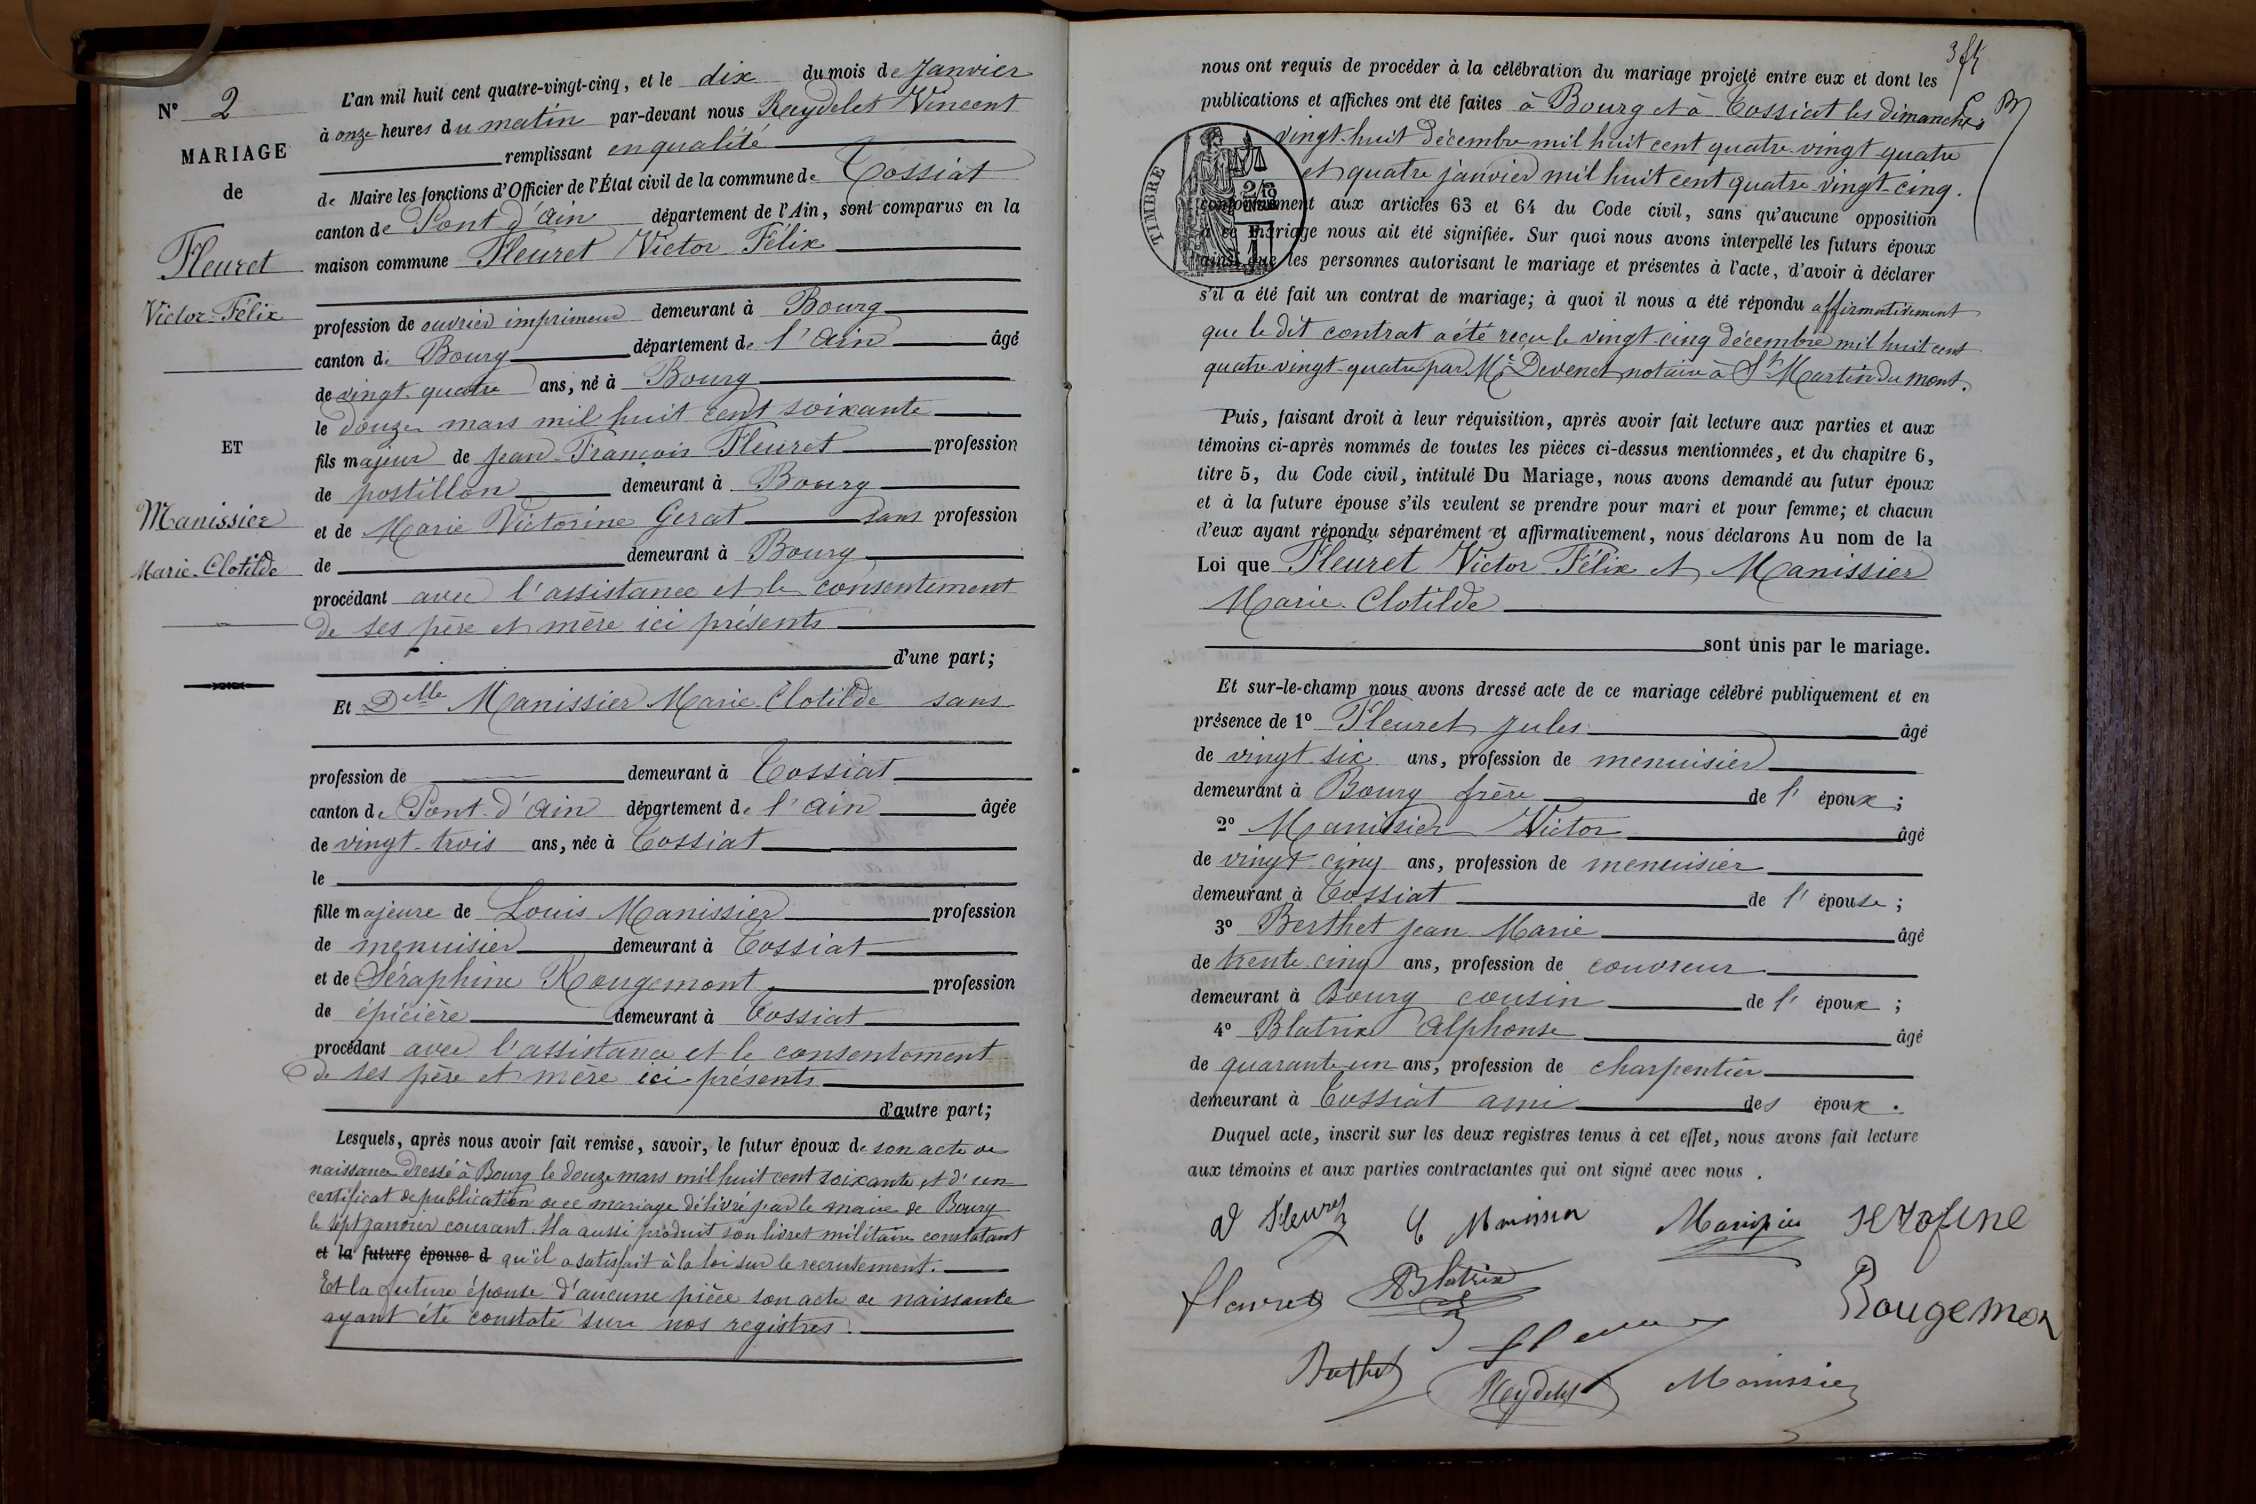 N° 2
MARIAGE
de
Fleuret
Victor-Félix
ET
Manissier
Marie-Clotilde
L'an mil huit cent quatre-vingt-cinq, et le dix du mois de Janvier
à onze heures du matin par-devant nous Reydelet Vincent
remplissant en qualité
de Maire les fonctions d'Officier de l'État civil de la commune de Tossiat
canton de Pont d'Ain département de l'Ain, sont comparus en la
maison commune Fleuret Victor Félix
profession de ouvrier imprimeur demeurant à Bourg
canton de Bourg département de l'Ain âgé
de vingt-quatre ans, né à Bourg
le douze mars mil huit cent soixante
fils majeur de Jean-François Fleuret profession
de postillon demeurant à Bourg
et de Marie Victorine Gerat sans profession
de demeurant à Bourg
procédant avec l'assistance et le consentement
de ses père et mère ici présents
d'une part;
Et Delle Manissier Marie Clotilde sans
profession de demeurant à Tossiat
canton de Pont-d'Ain département de l'Ain âgée
de vingt-trois ans, née à Tossiat
le
fille majeure de Louis Manissier profession
de menuisier demeurant à Tossiat
et de Séraphine Rougemont profession
de épicière demeurant à Tossiat
procédant avec l'assistance et le consentement
de ses père et mère ici présents
d'autre part;
Lesquels, après nous avoir fait remise, savoir, le futur époux de son acte de
naissance dressé à Bourg le douze mars mil huit cent soixante et d'un
certificat de publication de ce mariage délivré par le maire de Bourg
le sept janvier courant. Il a aussi produit son livret militaire constatant
et la future épouse d qu'il a satisfait à la loi sur le recrutement.
Et la future épouse d'aucune pièce son acte de naissance
ayant été constaté sur nos registres.
nous ont requis de procéder à la célébration du mariage projeté entre eux et dont les
publications et affiches ont été faites à Bourg et à Tossiat les dimanches
vingt-huit décembre mil huit cent quatre-vingt-quatre
et quatre janvier mil huit cent quatre-vingt-cinq.
TIMBRE
conformément aux articles 63 et 64 du Code civil, sans qu'aucune opposition
à ce mariage nous ait été signifiée. Sur quoi nous avons interpellé les futurs époux
ainsi que les personnes autorisant le mariage et présentes à l'acte, d'avoir à déclarer
s'il a été fait un contrat de mariage; à quoi il nous a été répondu affirmativement
que le dit contrat a été reçu le vingt-cinq décembre mil huit cent
quatre-vingt-quatre par Me Devenet notaire à St Martin du Mont.
Puis, faisant droit à leur réquisition, après avoir fait lecture aux parties et aux
témoins ci-après nommés de toutes les pièces ci-dessus mentionnées, et du chapitre 6,
titre 5, du Code civil, intitulé Du Mariage, nous avons demandé au futur époux
et à la future épouse s'ils veulent se prendre pour mari et pour femme; et chacun
d'eux ayant répondu séparément et affirmativement, nous déclarons Au nom de la
Loi que Fleuret Victor Félix et Manissier
Marie-Clotilde
sont unis par le mariage.
Et sur-le-champ nous avons dressé acte de ce mariage célébré publiquement et en
présence de 1° Fleuret Jules âgé
de vingt-six ans, profession de menuisier
demeurant à Bourg frère de l'époux;
2° Manissier Victor âgé
de vingt-cinq ans, profession de menuisier
demeurant à Tossiat de l'épouse;
3° Berthet Jean Marie âgé
de trente-cinq ans, profession de couvreur
demeurant à Bourg cousin de l'époux;
4° Blatrix Alphonse âgé
de quarante-un ans, profession de charpentier
demeurant à Tossiat ami des époux.
Duquel acte, inscrit sur les deux registres tenus à cet effet, nous avons fait lecture
aux témoins et aux parties contractantes qui ont signé avec nous.
V Fleuret C Manissier Manissier Serafine
Fleuret ABlatrix Rougemon
Berthet Fleuret
Reydelet Manissier